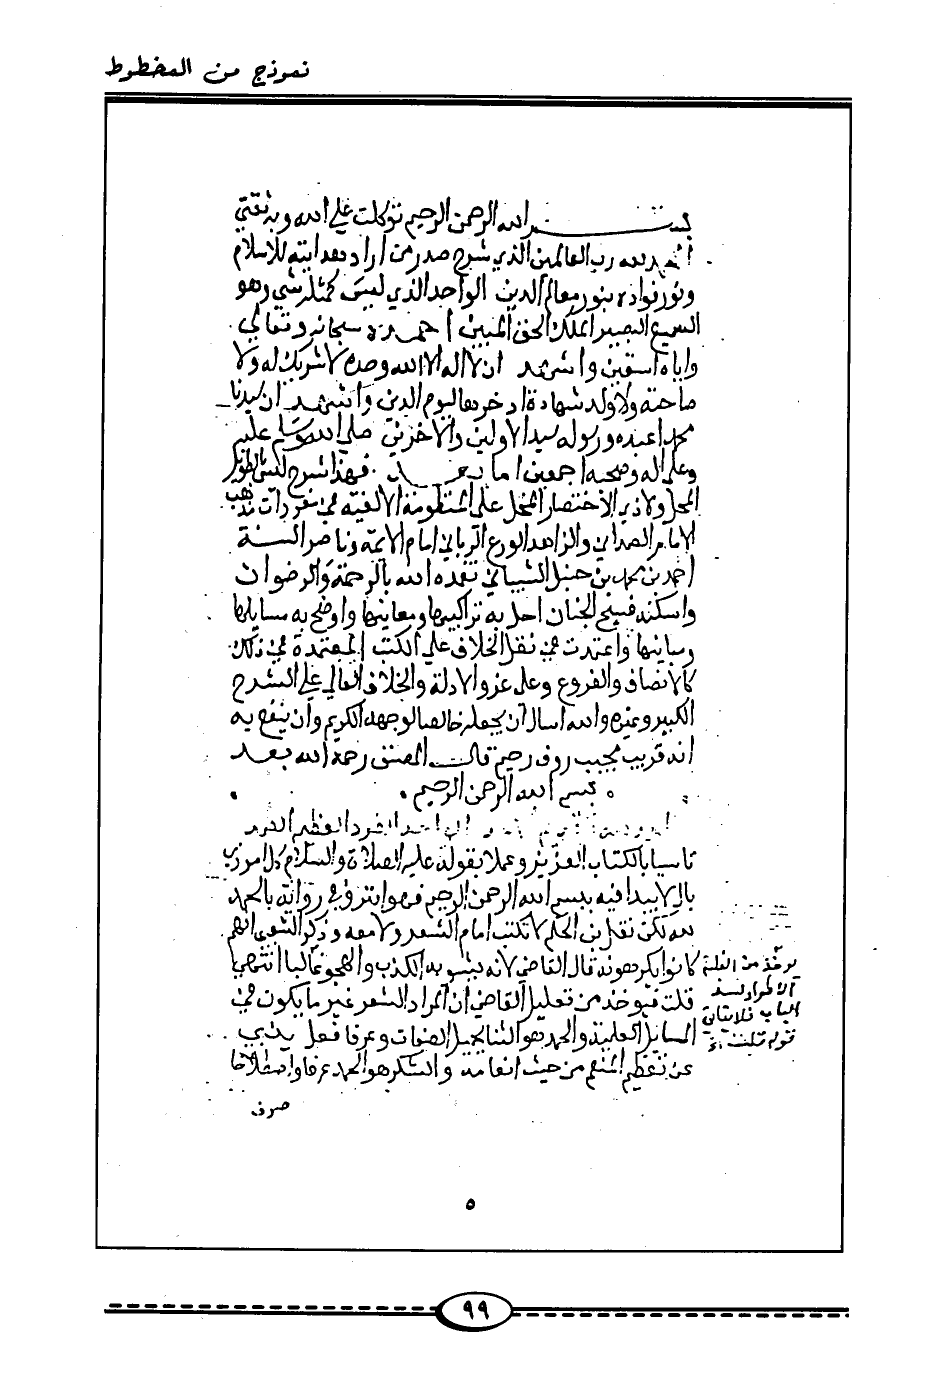 نموذج من المخطوط
بسم الله الرحمن الرحيم توكلت على الله وبه ثقتي
الحمد لله رب العالمين الذي شرح صدر من اراد هدايته للاسلام
ونور فواده بنور معالم الدين الواحد الذي ليس كمثله شي وهو
السميع البصير الملك الحق المبين احمده سبحانه وتعالى
واياه استعين واشهد ان لا اله الا الله وحده لا شريك له ولا
صاحبة ولا ولد شهادة ادخرها ليوم الدين واشهد ان سيدنا
محمدا عبده ورسوله سيد الاولين والاخرين صلى الله وسلم عليه
وعلى اله وصحبه اجمعين اما بعد فهذا شرح ليس بالطويل
الممل ولا ذي الاختصار المخل على المنظومة الالفيه في مفردات مذهب
الامام الصمداني والزاهد الورع الرباني امام الايمة وناصر السنة
احمد بن محمد بن حنبل الشيباني تغمده الله بالرحمة والرضوان
واسكنه فسيح الجنان احل به تراكيبها ومعانيها واوضح به مسايلها
ومبانيها واعتمدت في نقل الخلاف على الكتب المعتمدة في ذلك
كالانصاف والفروع وعلى عزو الادلة والخلاف العالي على الشرح
الكبير وغيره والله اسال ان يجعله خالصا لوجهه الكريم وان ينفع به
انه قريب مجيب روف رحيم قال المصنف رحمه الله بعد
بسم الله الرحمن الرحيم
الواحد الفرد العظيم
تاسيا بالكتاب العزيز وعملا بقوله عليه الصلاة والسلام كل امر ذي
بال لا يبدا فيه ببسم الله الرحمن الرحيم فهو ابتر وفي رواية بالحمد
لله لكن نقل بن الحكم لا تكتب امام الشعر ولا معه وذكر الشعبي انهم
كانوا يكرهونه قال القاضي لانه يشوبه الكذب والهجو غالبا انتهى
قلت فيوخذ من تعليل القاضي ان المراد الشعر غير ما يكون في
المسايل العلمية والحمد هو الثنا بجميل الصفات وعرفا فعل ينبي
عن تعظيم المنعم من حيث انعامه والشكر هو الحمد عرفا واصطلاحا
صرف
يوخذ من
الباب
قوله قلت
٥
٩٩